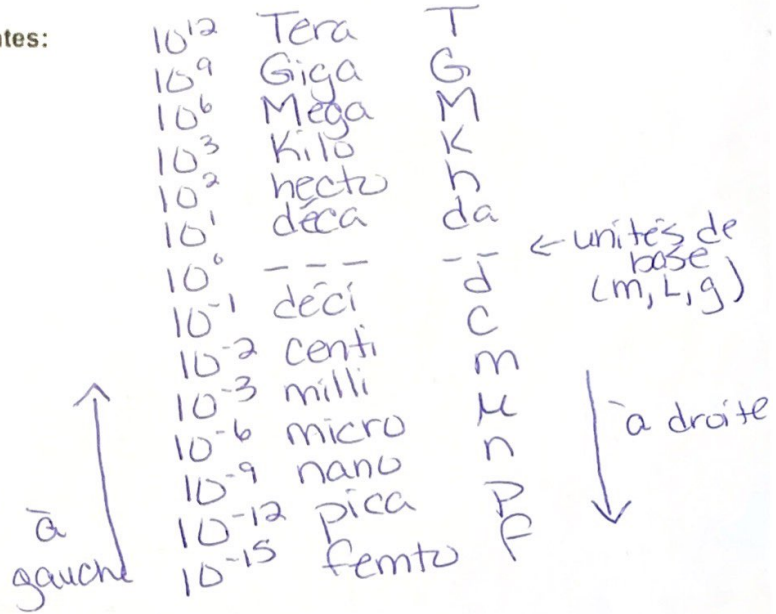 ites:
10¹² Tera T
10⁹ Giga G
10⁶ Mega M
10³ Kilo K
10² hecto h
10¹ déca da
10⁰ --- -- ← unités de base (m, L, g)
10⁻¹ déci d
10⁻² centi c
10⁻³ milli m
10⁻⁶ micro μ
10⁻⁹ nano n
10⁻¹² pica p
10⁻¹⁵ femto f
à gauche
à droite